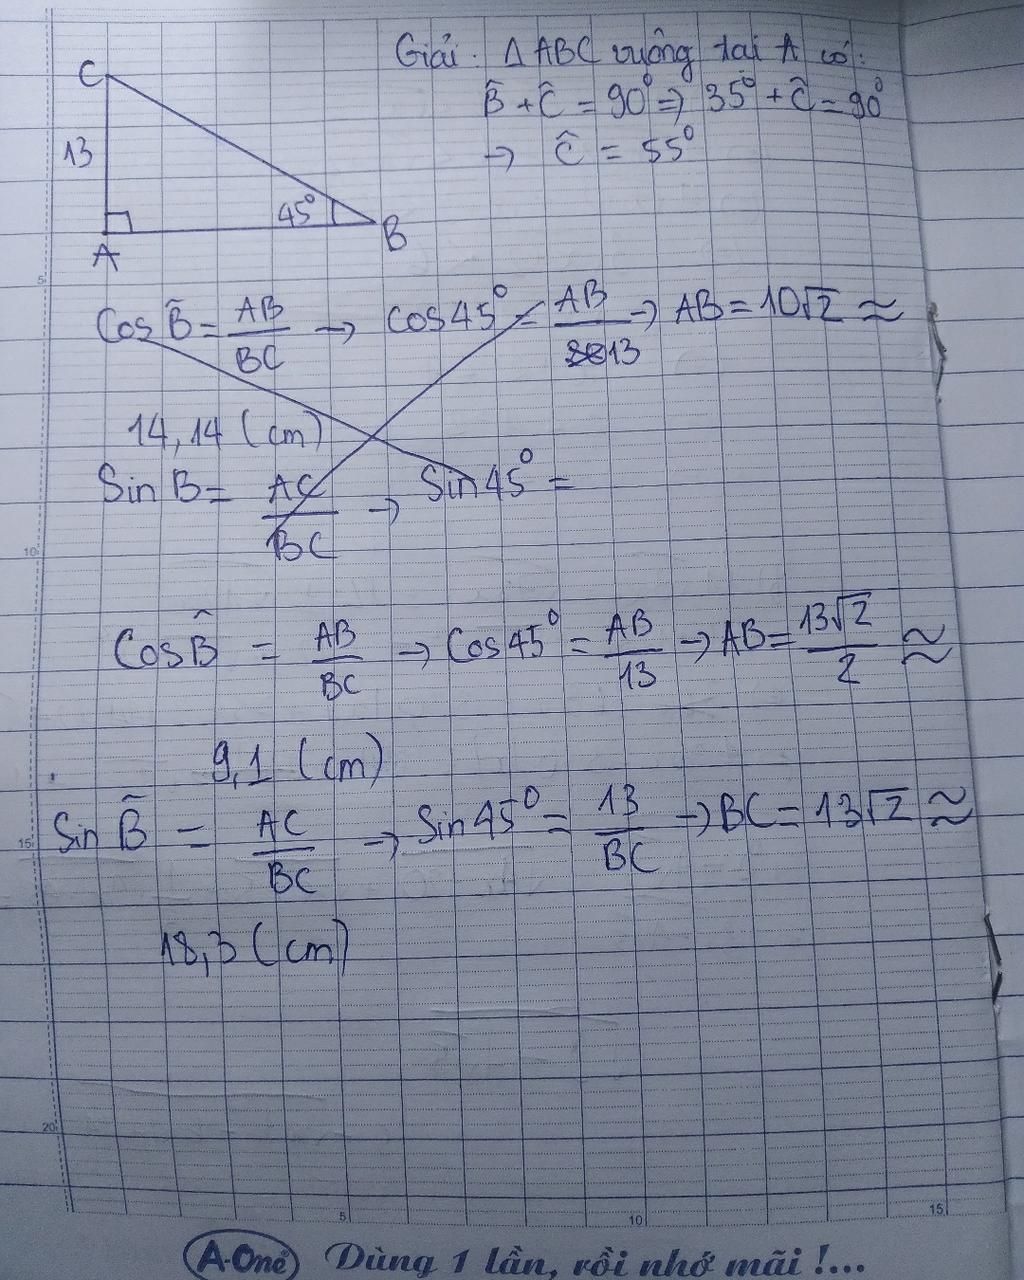 Giải: Δ ABC vuông tại A có:
B̂ + Ĉ = 90° ⇒ 35° + Ĉ = 90°
→ Ĉ = 55°
C
13
45°
A
B
Cos B̂ = AB/BC → cos 45° = AB/13 → AB = 10√2 ≈
14,14 (cm)
Sin B = AC/BC → Sin 45° =
Cos B̂ = AB/BC → Cos 45° = AB/13 → AB = 13√2/2 ≈
9,1 (cm)
Sin B̂ = AC/BC → Sin 45° = 13/BC → BC = 13√2 ≈
18,3 (cm)
5
10
15
20
5
10
15
A-One Dùng 1 lần, rồi nhớ mãi !...